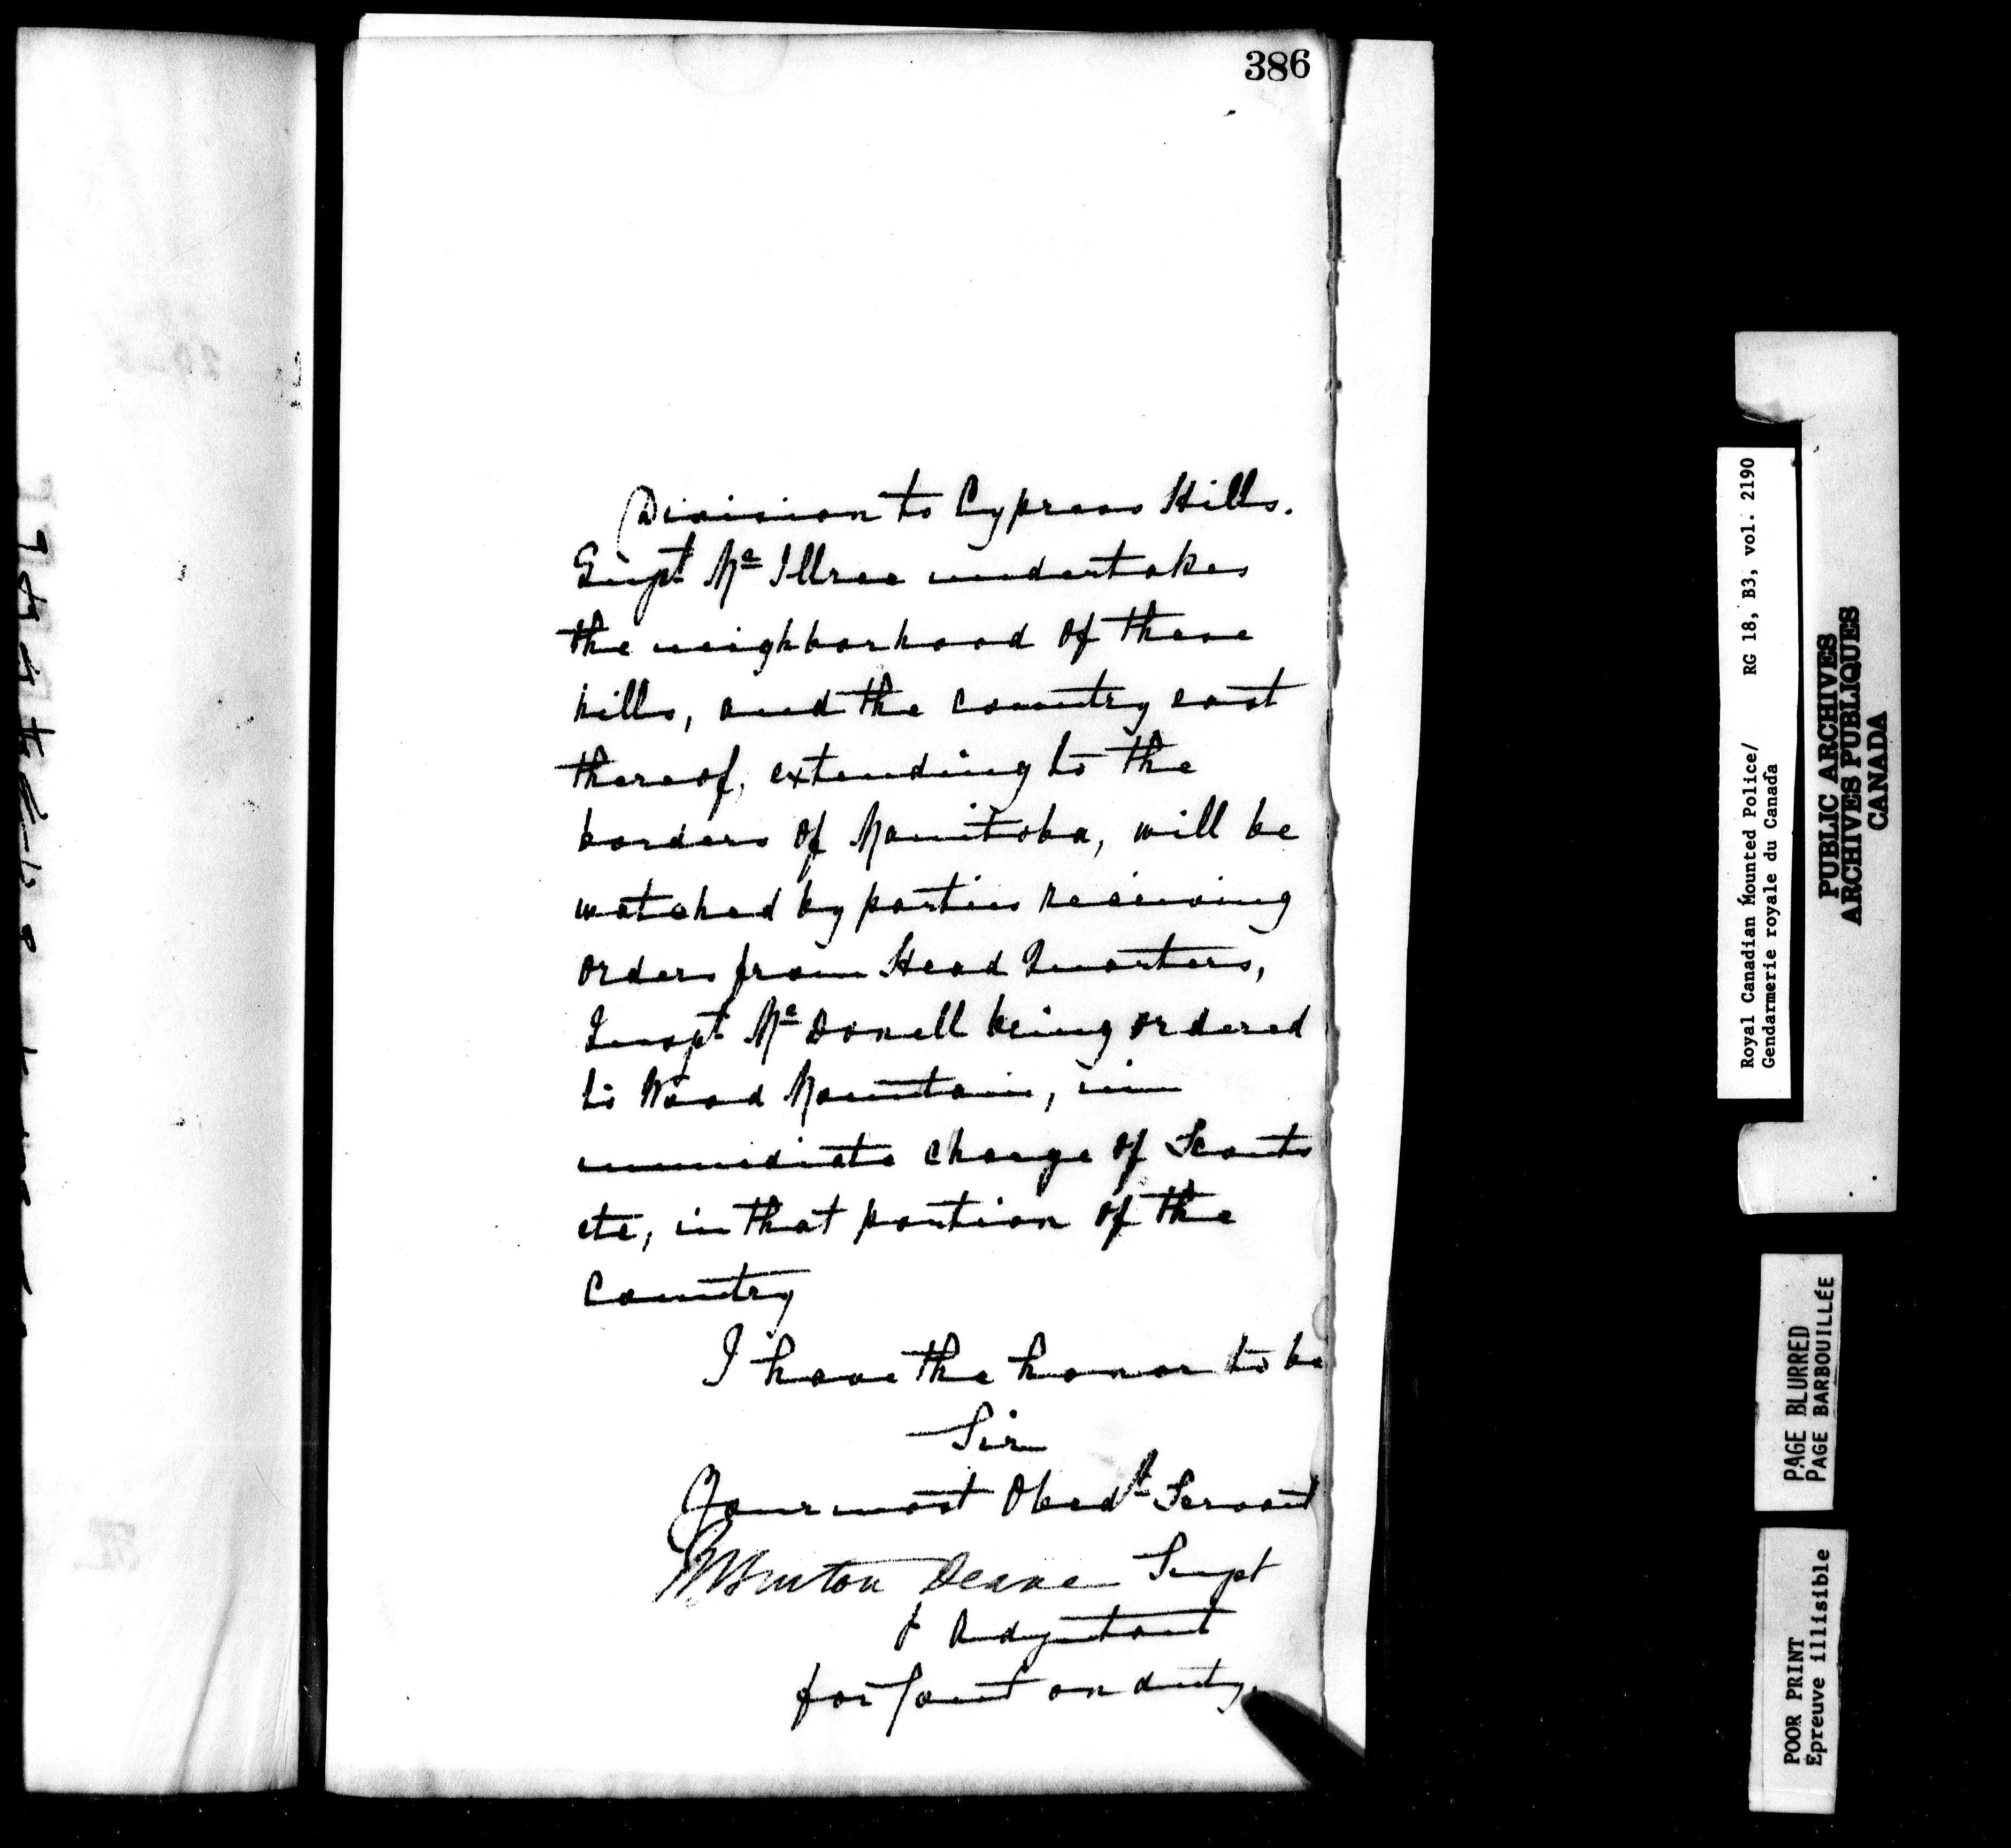 386
Division to Cypress Hills.
Supt Mc Illree undertakes
the neighborhood of these
hills, and the country east
thereof, extending to the
borders of Manitoba, will be
watched by parties receiving
orders from Head Quarters,
Inspt Mc Donell being ordered
to Wood Mountain, in
immediate charge of Scouts
etc, in that portion of the
Country
I have the honor to be
Sir
Your most Obedt Servant
R Burton Deane Supt
& Adjutant
for Comt on duty.
Royal Canadian Mounted Police/ RG 18, B3, vol. 2190
Gendarmerie royale du Canada
PUBLIC ARCHIVES
ARCHIVES PUBLIQUES
CANADA
PAGE BLURRED
PAGE BARBOUILLÉE
POOR PRINT
Épreuve illisible